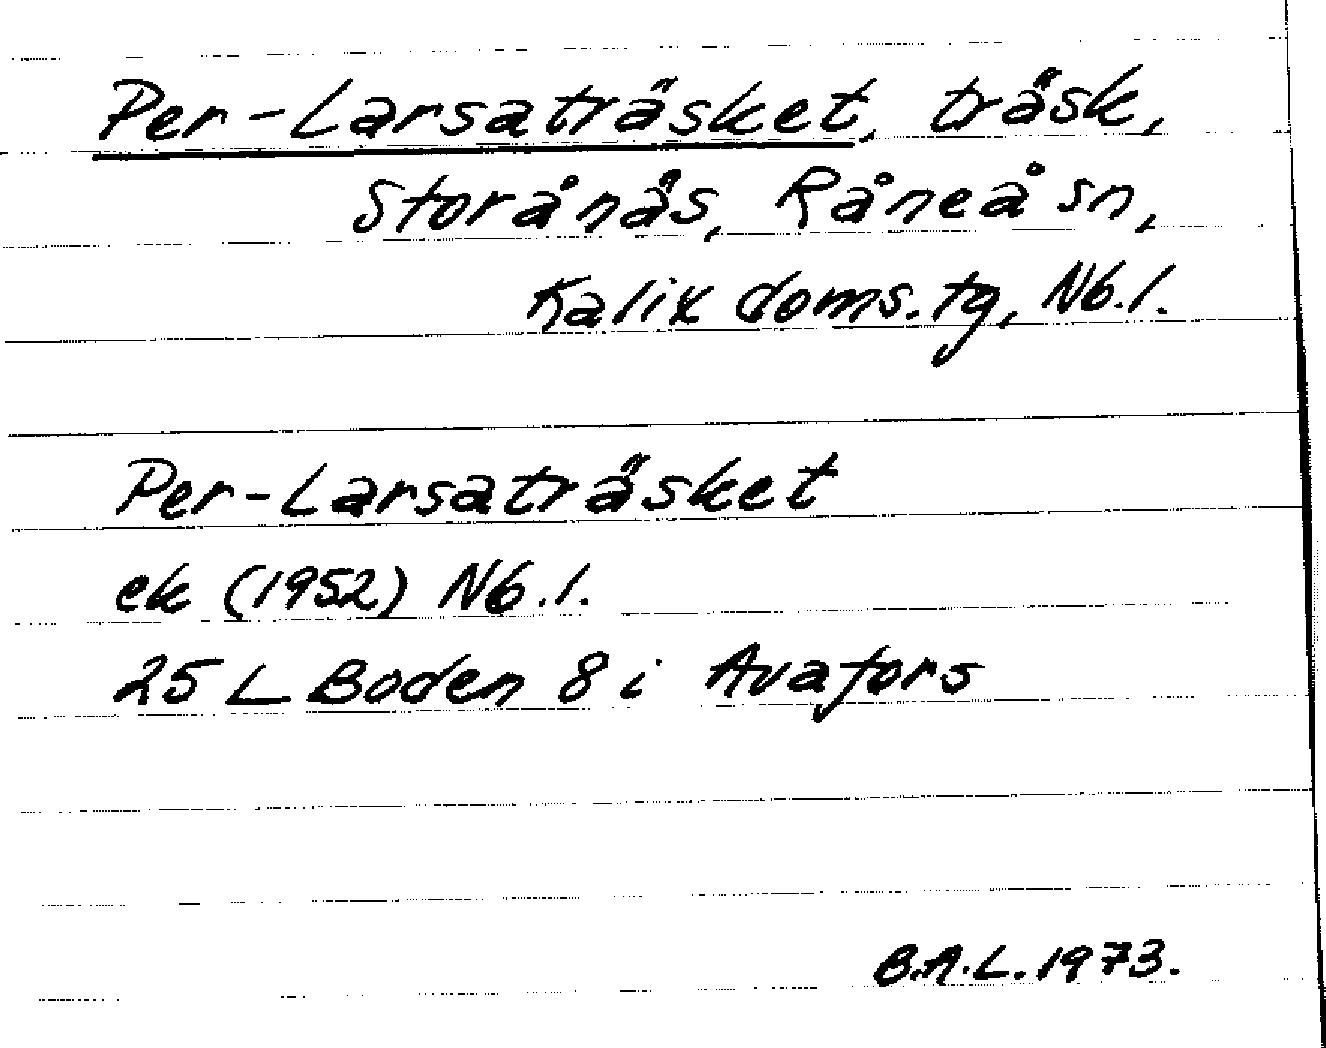 Per-Larsaträsket, träsk,
Storånäs, Råneå sn,
Kalix doms.tg, Nb.l.
Per-Larsaträsket
ek (1952) Nb.l.
25 L Boden 8 i Avafors
B.A.L. 1973.